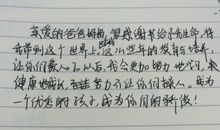 亲爱的爸爸妈妈,很感谢你们给了我生命,将
我带到这个世界上,这些年的教育与培养,
让你们费心了,以后,我会更加努力地学习,
健康地成长,不让你们操心。成为
一个优秀的好孩子,成为你们的骄傲!